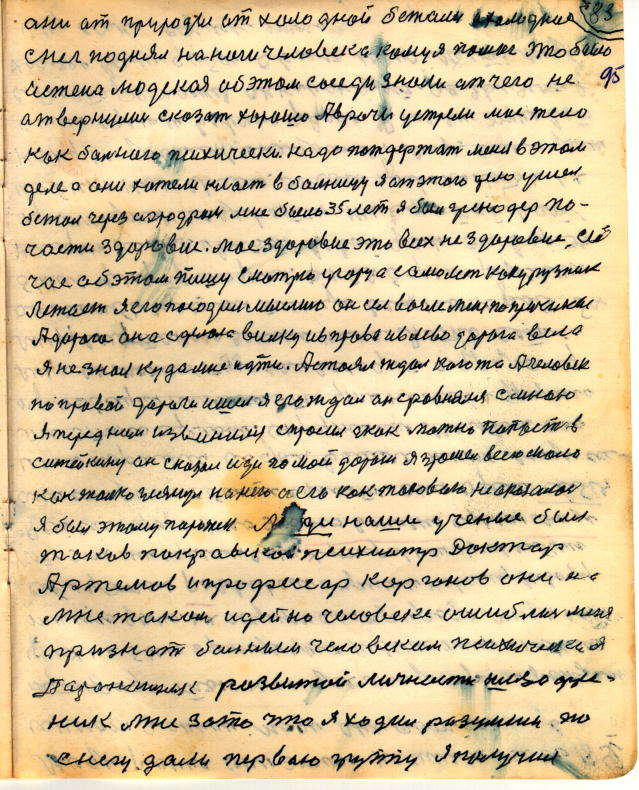 83
95
ани от природы от холодной бежали а холодная
снег поднял на ноги человека кому я помог это было
истена людская об этом соседи знали от чего не
отвернулис сказат хорошо А врачи устрели мое тело
как балного психически. надо потдержат меня в этом
деле а они хотели класт в балницу я от этого дело ушел
бежал через аэродром мне было 35 лет я был тренодер по-
части здоровие. мое здоровие это всех не здоровие, сей
час об этом пишу смотрю угору а самолет кокурузник
летает я его посадил мыслию он сел возле меня по прычинке
А дорога она сделала вилку и вправо и влево дорога вела
я не знал куда мне идти. А стоял ждал кого та А человек
по правой дороги ишел я его ждал он сровнялся с мною
я перед ним извинился спросил как можно попаст в
ситейкину он сказал иди по моей дороги я прошел всего около
как толко глянул на него а его как такового не оказалос
я был этому поражен Люди наши ученые был
таков покравской психиатр Доктар
Артемов и професcар Корганов они на
мне таком идейно человеке ошиблис меня
признат балным человеком психически я
Параноник розвитой личности шизофре-
ник мне зато что я ходил разумши по
снегу дали первою групу я получил